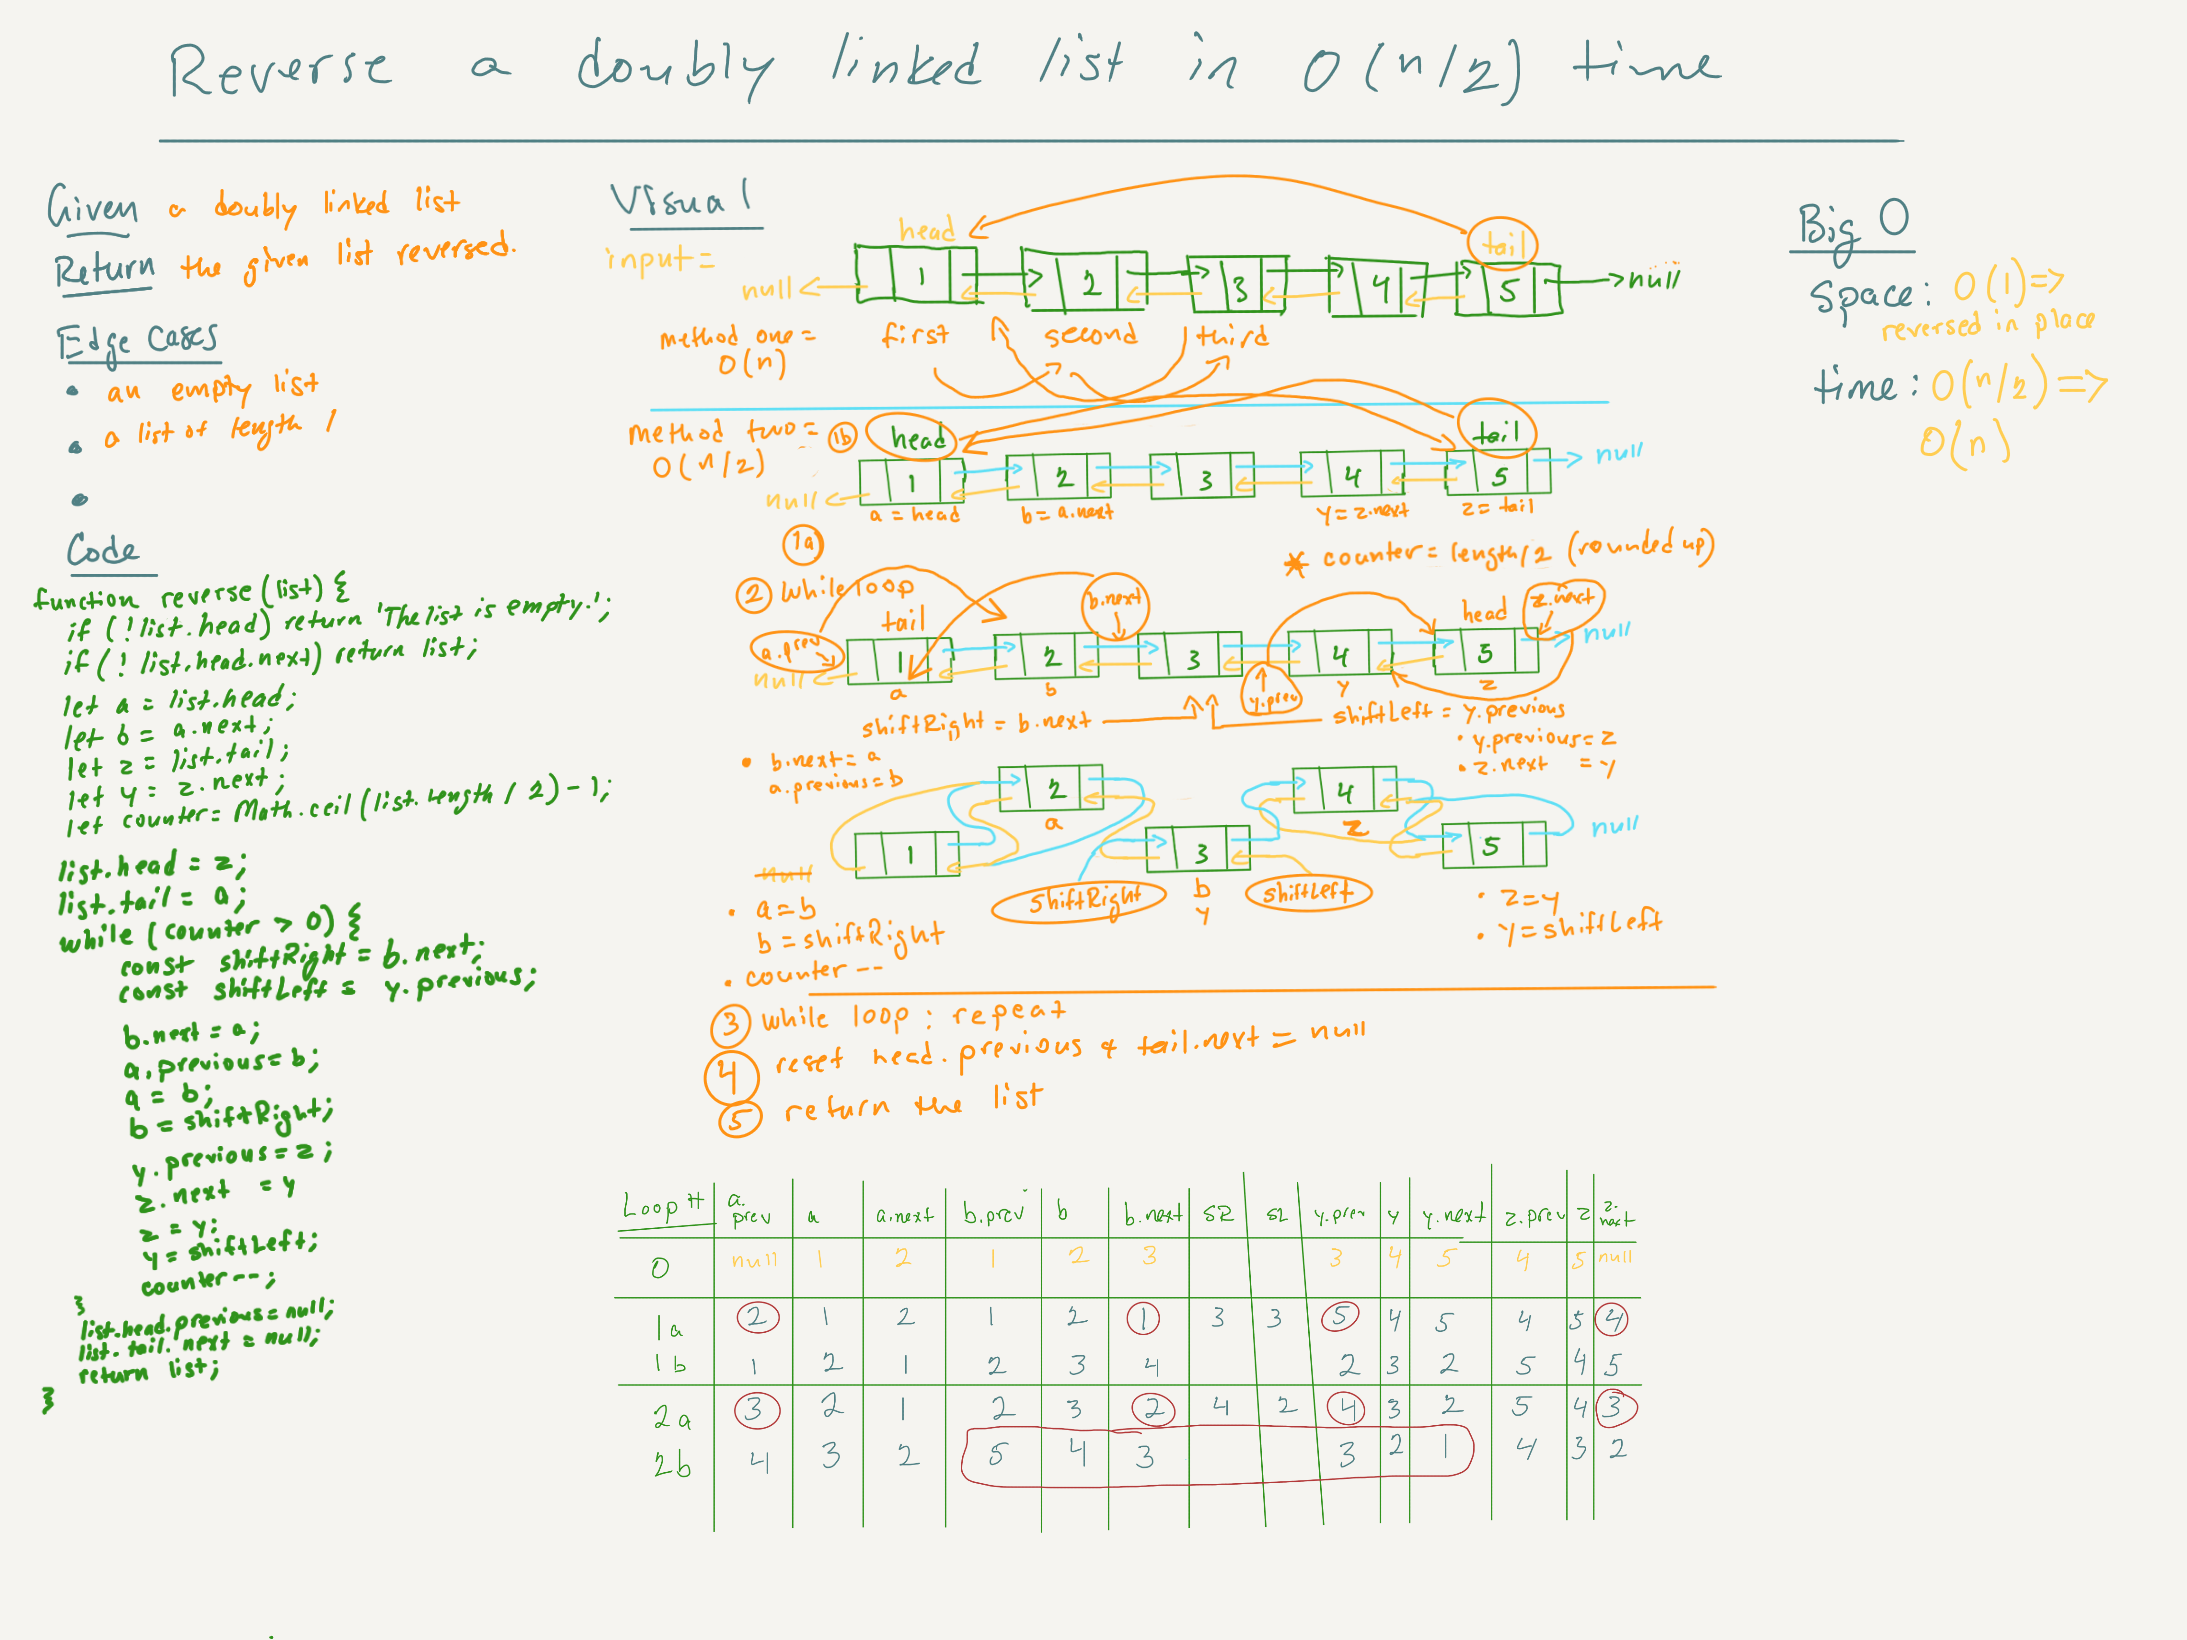 Reverse a doubly linked list in O(n/2) time
Given a doubly linked list
Return the given list reversed.
Edge Cases
• an empty list
• a list of length 1
•
Code
function reverse(list) {
if (!list.head) return 'The list is empty.';
if (! list.head.next) return list;
let a = list.head;
let b = a.next;
let z = list.tail;
let y = z.next;
let counter = Math.ceil(list.length / 2) - 1;
list.head = z;
list.tail = a;
while (counter > 0) {
const shiftRight = b.next;
const shiftLeft = y.previous;
b.next = a;
a.previous = b;
a = b;
b = shiftRight;
y.previous = z;
z.next = y
z = y;
y = shiftLeft;
counter--;
}
list.head.previous = null;
list.tail.next = null;
return list;
}
Visual
input =
head
tail
null 1 2 3 4 5 null
method one =
O(n)
first second third
method two =
O(n/2)
1b head tail
null 1 2 3 4 5 null
a = head b = a.next y = z.next z = tail
1a
* counter = length/2 (rounded up)
2 while loop
tail b.next head z.next
a.prev
null 1 2 3 4 5 null
a b y.prev y z
shiftRight = b.next shiftLeft = y.previous
• b.next = a
a.previous = b
• y.previous = z
• z.next = y
2 4
a z
1 3 5 null
null
shiftRight b shiftLeft
y
• a = b
b = shiftRight
• counter --
• z = y
• y = shiftLeft
3 while loop : repeat
4 reset head.previous & tail.next = null
5 return the list
Loop # a.prev a a.next b.prev b b.next SR SL y.prev y y.next z.prev z z.next
0 null 1 2 1 2 3 3 4 5 4 5 null
1a 2 1 2 1 2 1 3 3 5 4 5 4 5 4
1b 1 2 1 2 3 4 2 3 2 5 4 5
2a 3 2 1 2 3 2 4 2 4 3 2 5 4 3
2b 4 3 2 5 4 3 3 2 1 4 3 2
Big O
Space: O(1) =>
reversed in place
time: O(n/2) =>
O(n)